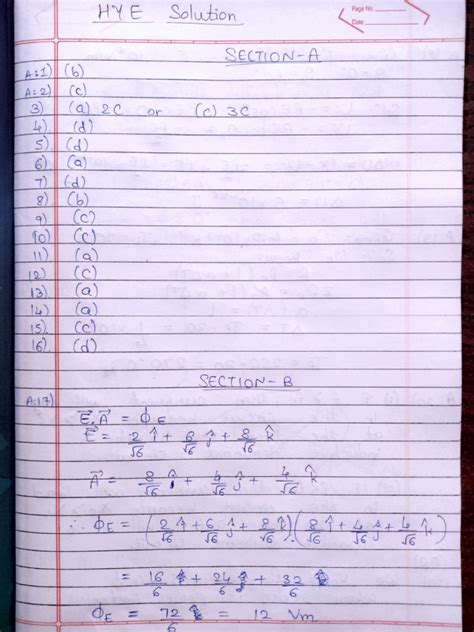 HYE Solution
Page No.
Date
SECTION-A
A:1) (b)
A:2) (c)
3) (a) 2C or (c) 3C
4) (d)
5) (d)
6) (a)
7) (d)
8) (b)
9) (c)
10) (c)
11) (a)
12) (c)
13) (a)
14) (a)
15) (c)
16) (d)
SECTION-B
A:17)
E⃗.A⃗ = ϕE
E⃗ = 2/√6 î + 6/√6 ĵ + 8/√6 k̂
A⃗ = 8/√6 î + 4/√6 ĵ + 4/√6 k̂
∴ ϕE = (2/√6 î + 6/√6 ĵ + 8/√6 k̂).(8/√6 î + 4/√6 ĵ + 4/√6 k̂)
= 16/6 + 24/6 + 32/6
ϕE = 72/6 = 12 Vm